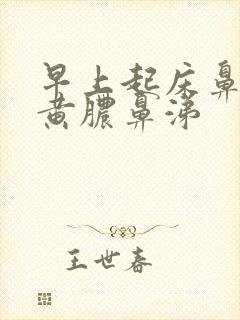 早上起床鼻
黄脓鼻涕
王世春